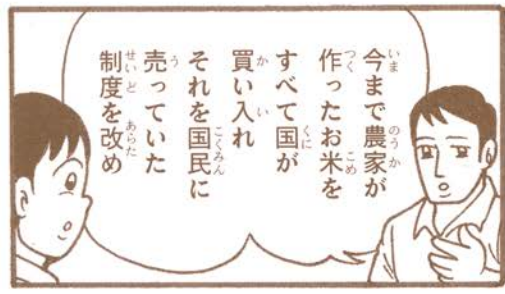 今まで農家が
作ったお米を
すべて国が
買い入れ
それを国民に
売っていた
制度を改め